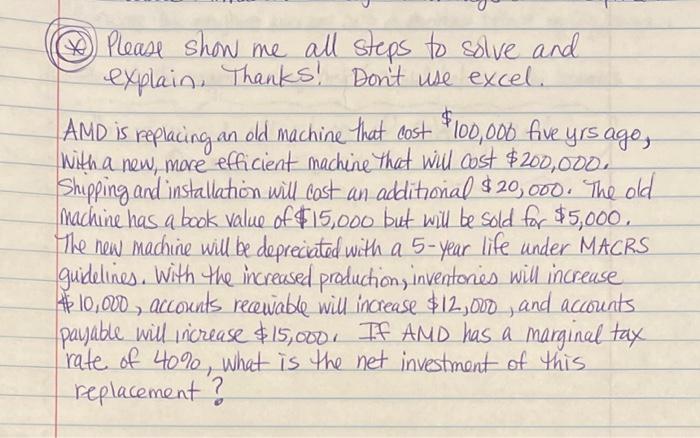 (*) Please show me all steps to solve and
explain. Thanks! Don't use excel.
AMD is replacing an old machine that cost $100,000 five yrs ago,
with a new, more efficient machine that will cost $200,000.
Shipping and installation will cost an additional $20,000. The old
machine has a book value of $15,000 but will be sold for $5,000.
The new machine will be depreciated with a 5-year life under MACRS
guidelines. With the increased production, inventories will increase
$10,000, accounts receivable will increase $12,000, and accounts
payable will increase $15,000. If AMD has a marginal tax
rate of 40%, what is the net investment of this
replacement?